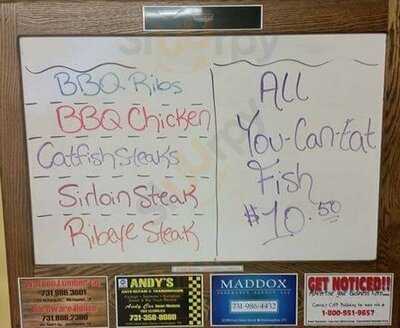 BBQ Ribs
BBQ Chicken
Catfish Steaks
Sirloin Steak
Ribeye Steak
All
You-Can-Eat
Fish
$10.50
731.986.3601
731.986.2380
ANDY'S
AUTO REPAIR & TRANSMISSIONS
731-358-8080
MADDOX
731-986-4432
GET NOTICED!!
1-800-551-9657